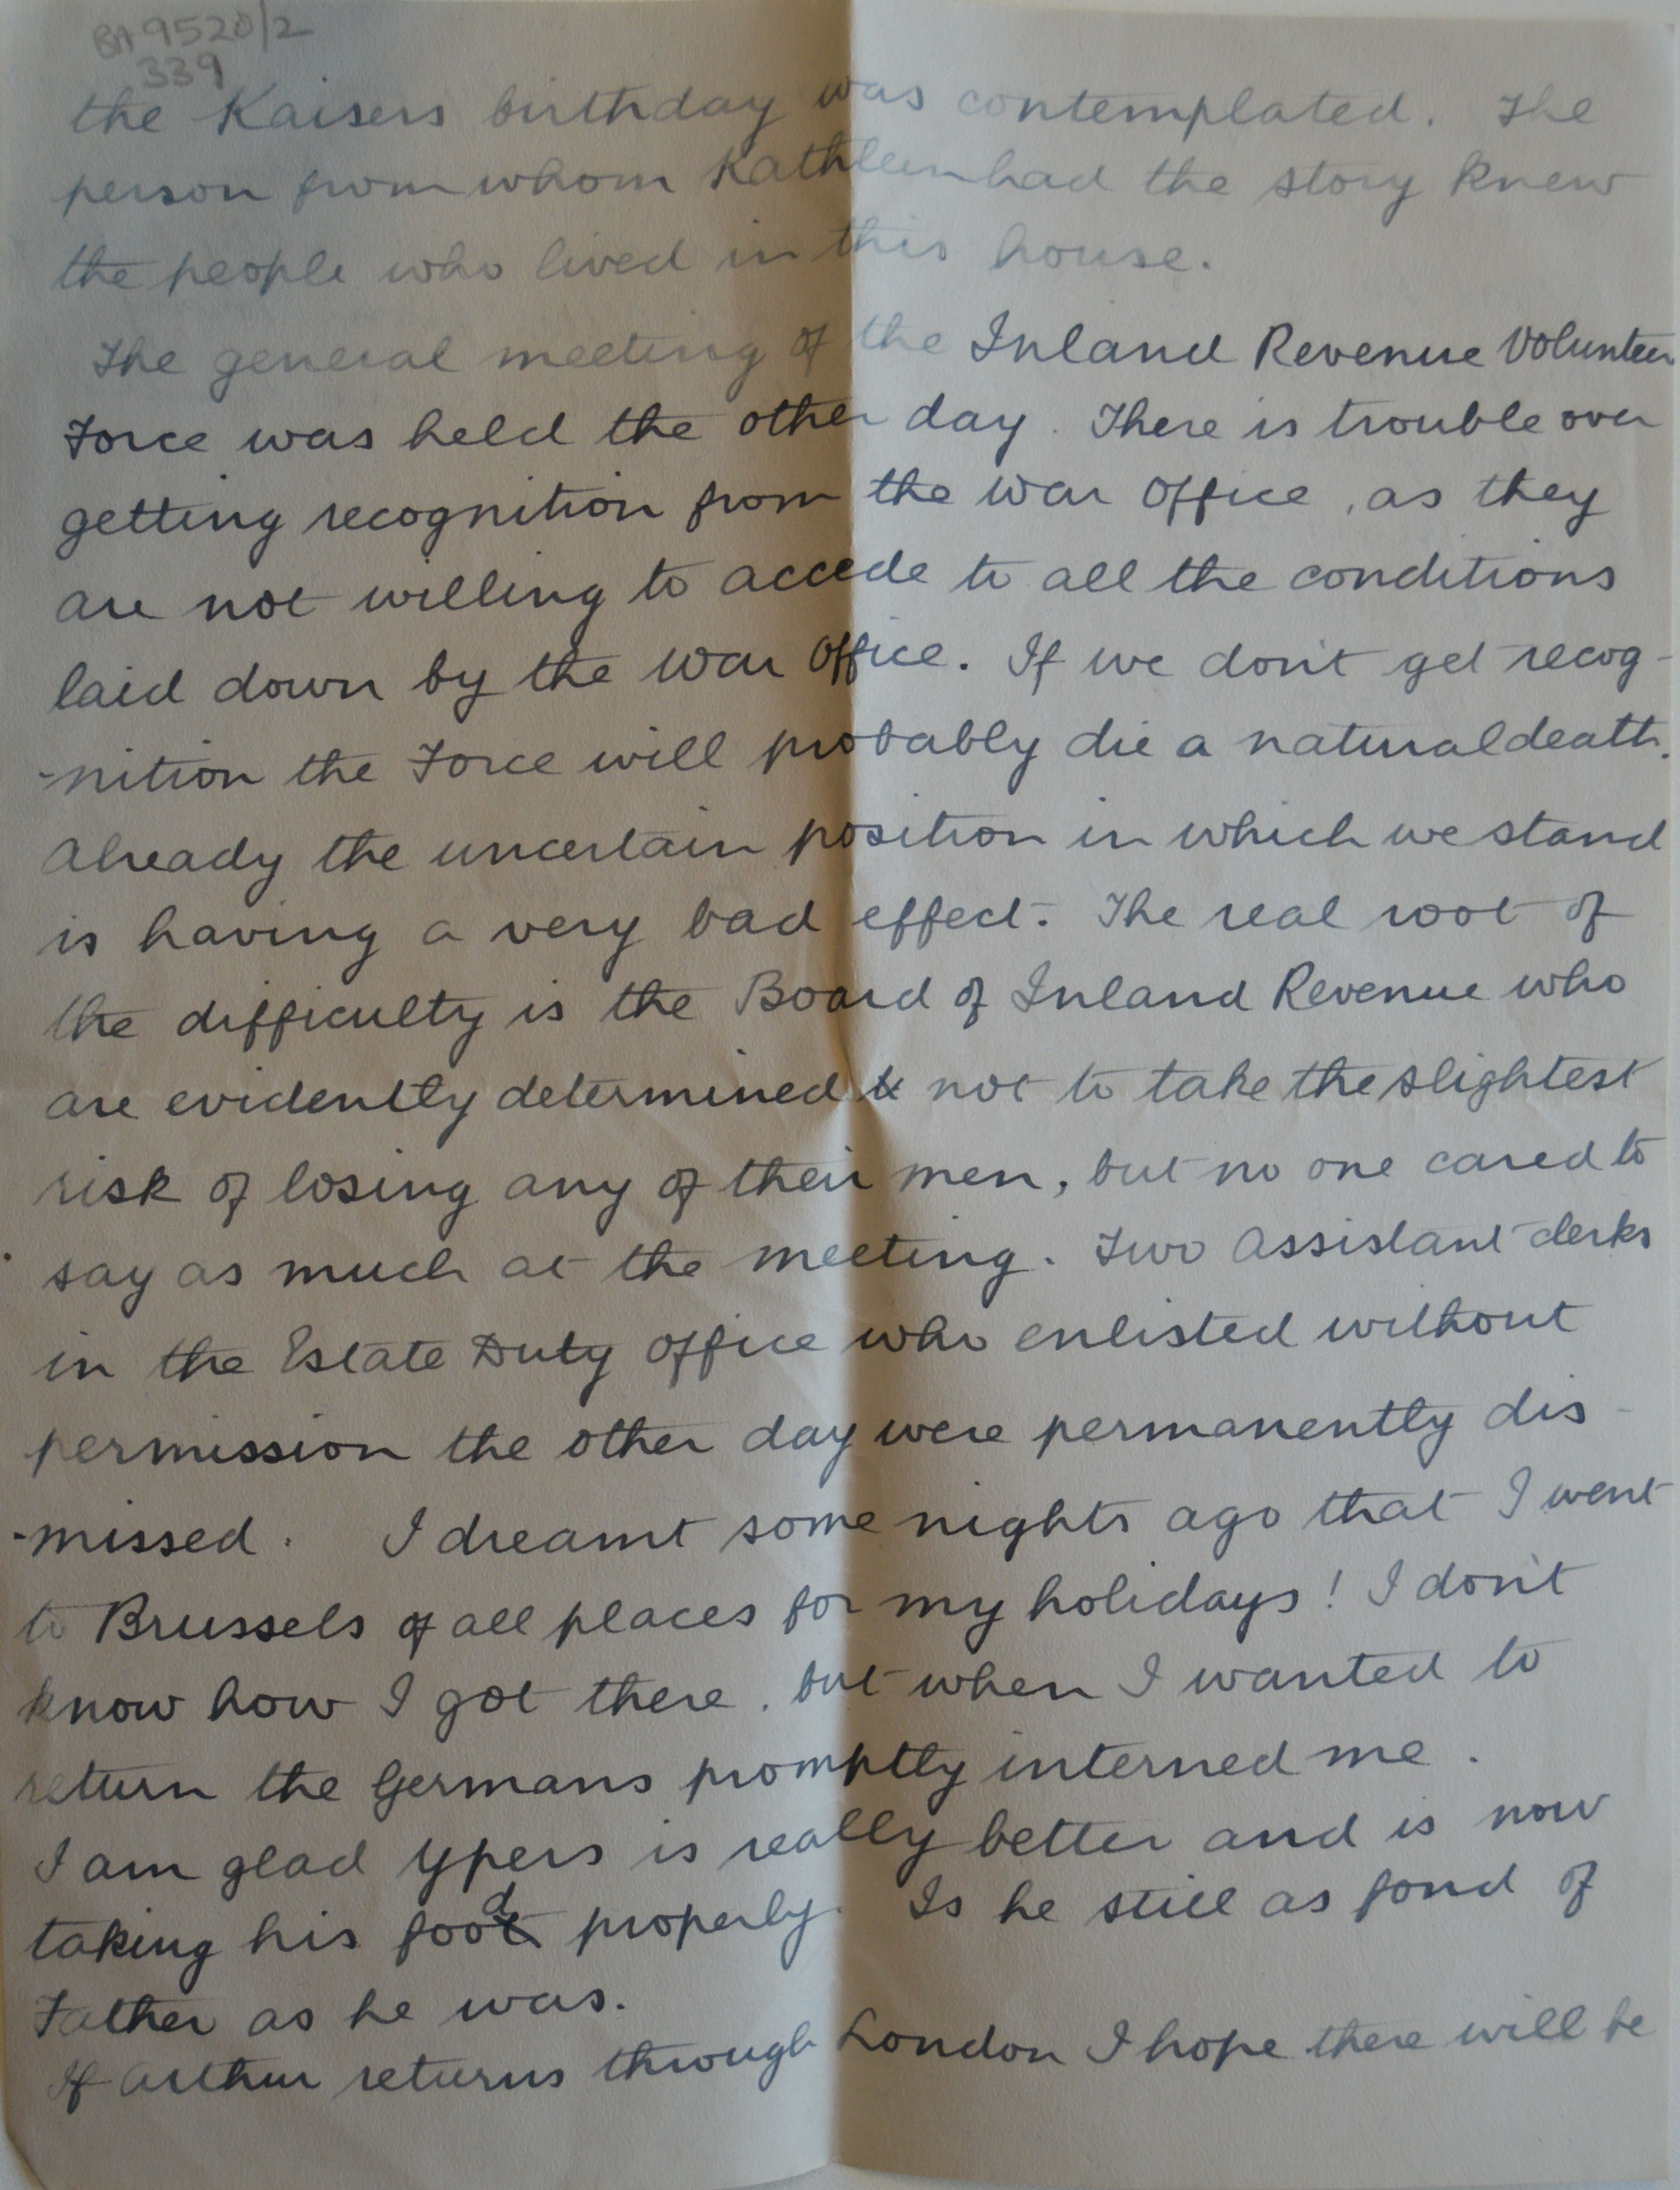 BA 9520/2
339
the Kaisers birthday was contemplated. The
person from whom Kathleen had the story knew
the people who lived in this house.
The general meeting of the Inland Revenue Volunteer
Force was held the other day. There is trouble over
getting recognition from the War Office, as they
are not willing to accede to all the conditions
laid down by the War Office. If we don't get recog-
-nition the Force will probably die a natural death.
Already the uncertain position in which we stand
is having a very bad effect. The real root of
the difficulty is the Board of Inland Revenue who
are evidently determined not to take the slightest
risk of losing any of their men, but no one cared to
say as much at the meeting. Two Assistant clerks
in the Estate Duty Office who enlisted without
permission the other day were permanently dis-
-missed. I dreamt some nights ago that I went
to Brussels of all places for my holidays! I don't
know how I got there, but when I wanted to
return the Germans promptly interned me.
I am glad Ypers is really better and is now
taking his food properly. Is he still as fond of
Father as he was.
If Arthur returns through London I hope there will be